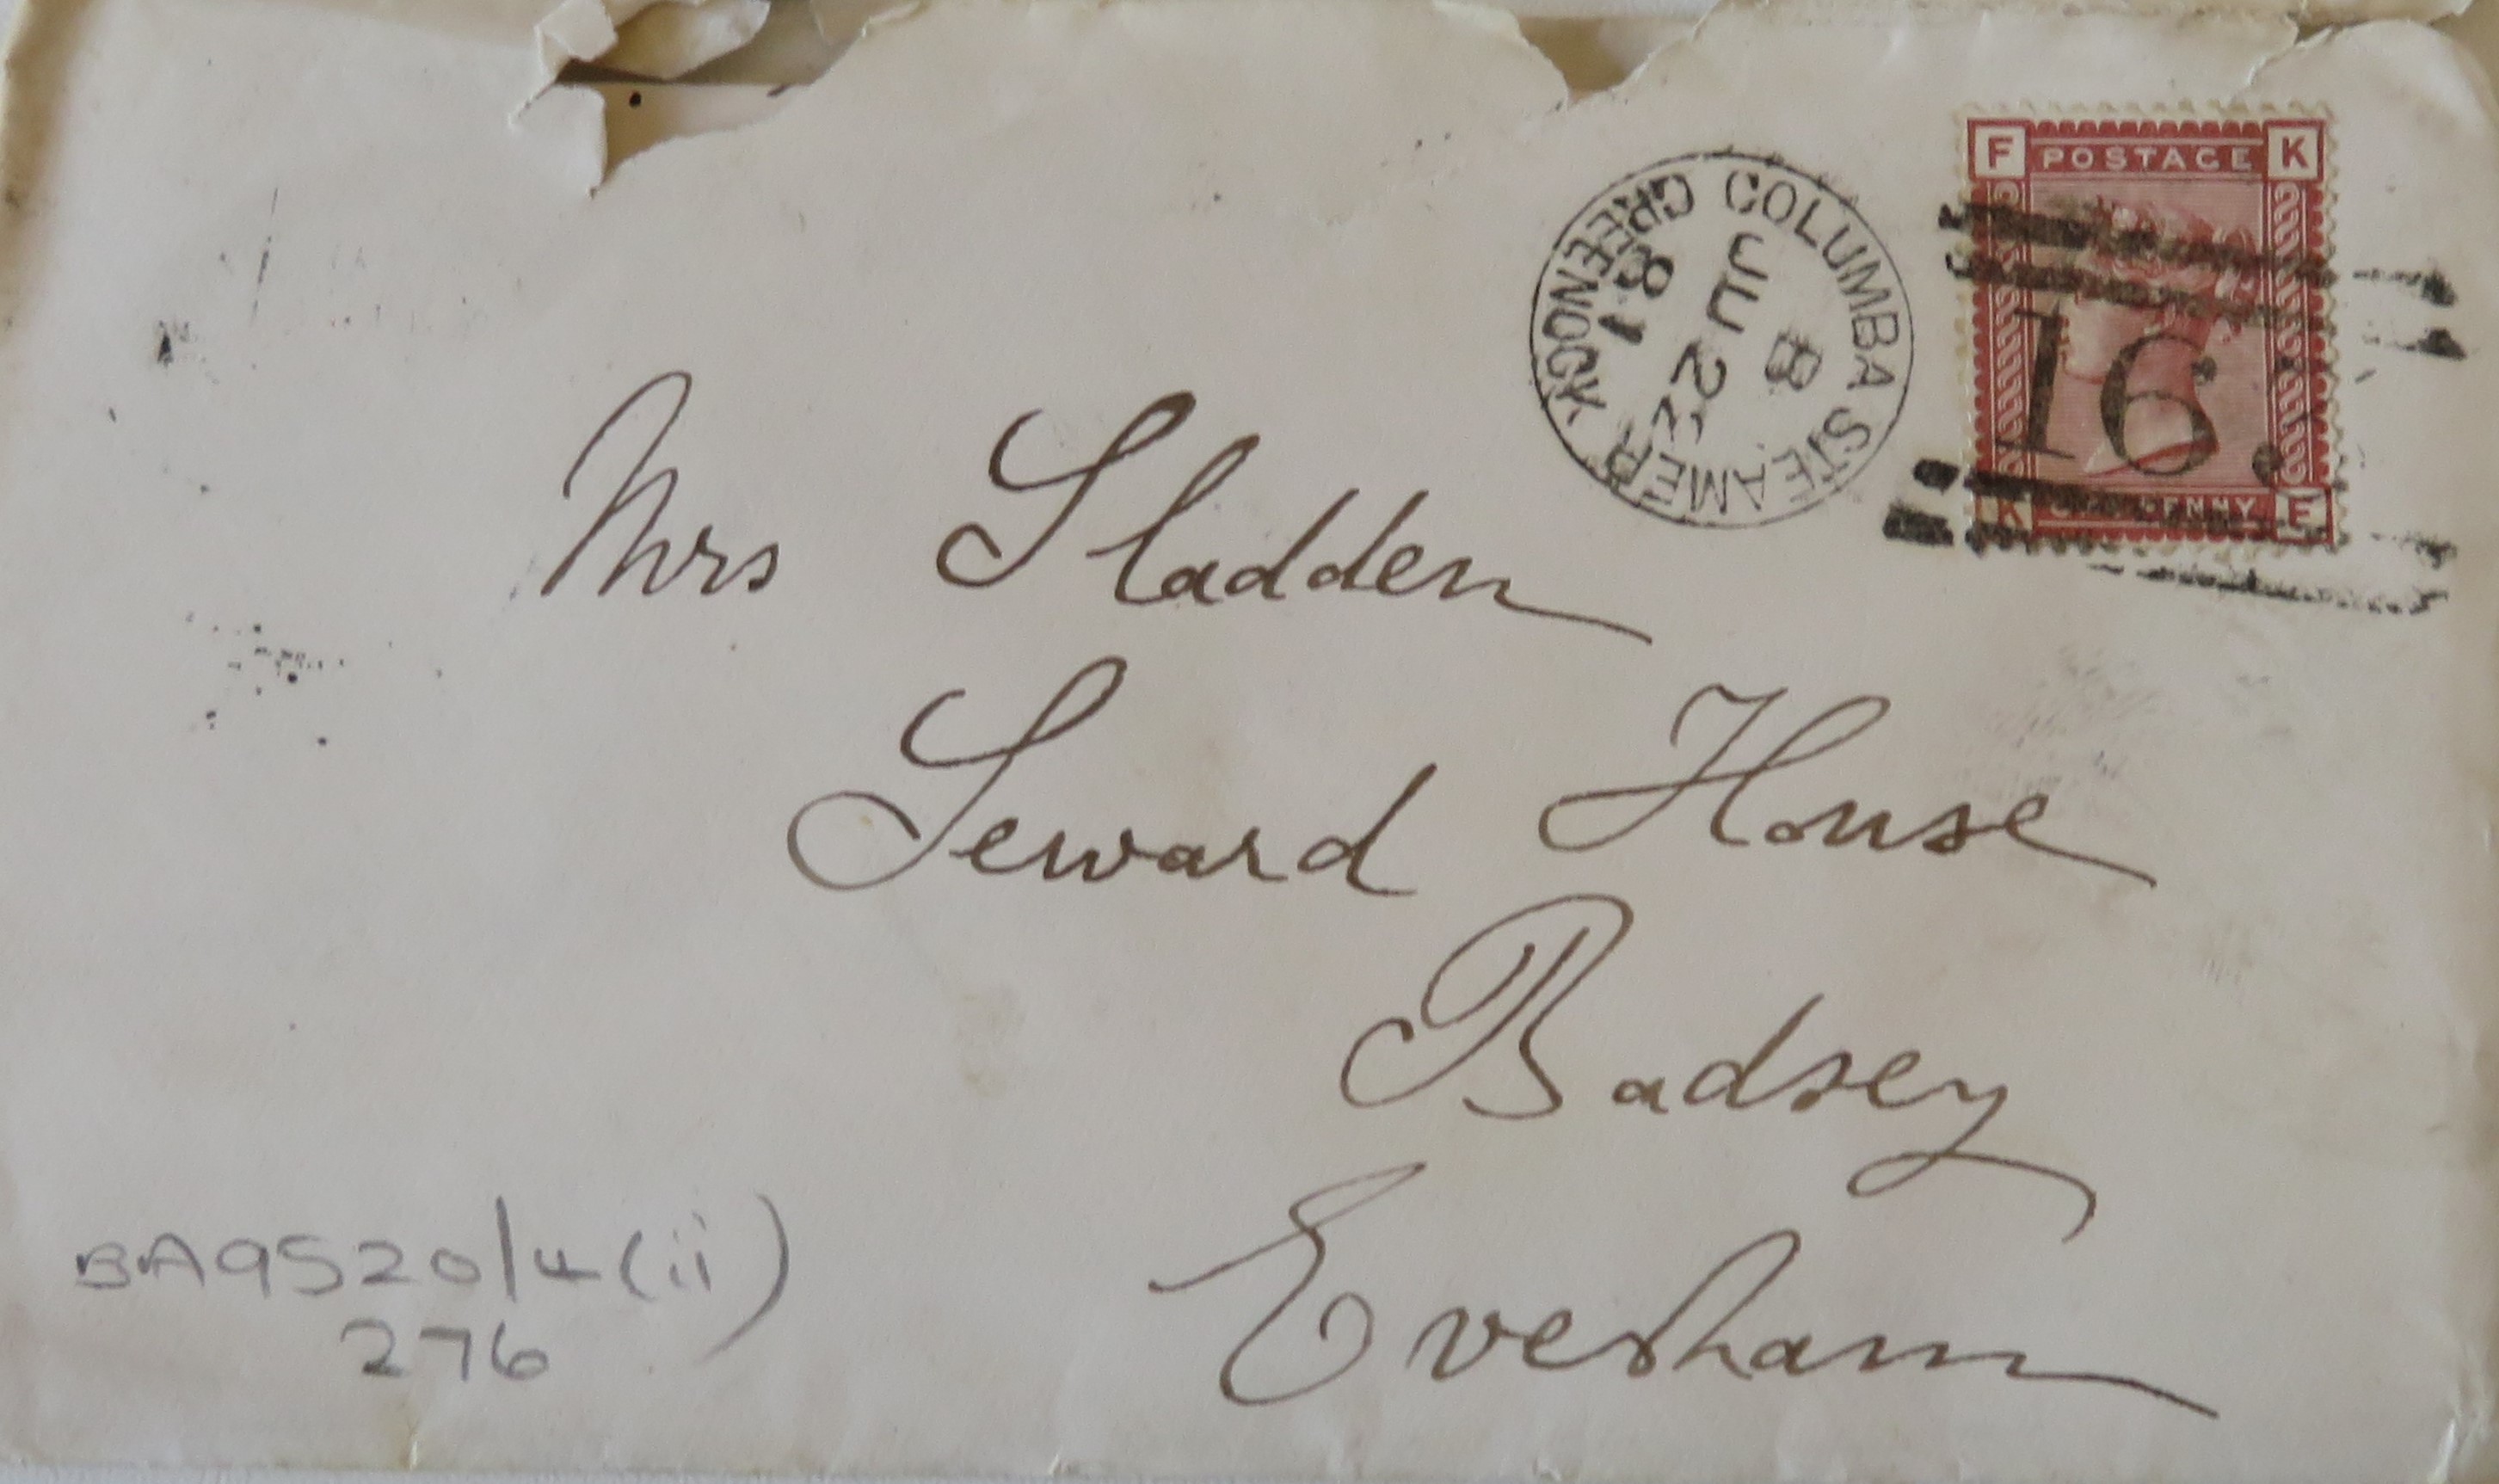 F POSTAGE K
COLUMBA STEAMER
GREENOCK
B
JL 22
81
16.
K PENNY F
Mrs Sladden
Seward House
Badsey
Evesham
BA9520/4(ii)
276